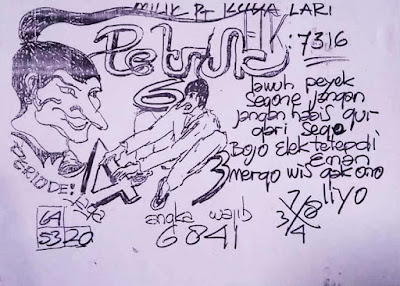 MILIK PT KUDA LARI
Petruk HK : 7316
6
lawuh peyek
segone jangan
jangan habis gur
qari sego
Bojo elek tetepdi
Eman
merqo wis gak ono
liyo
PERIODE:
14
3
64
53 20
angka wajib
6841
7/8
3/4